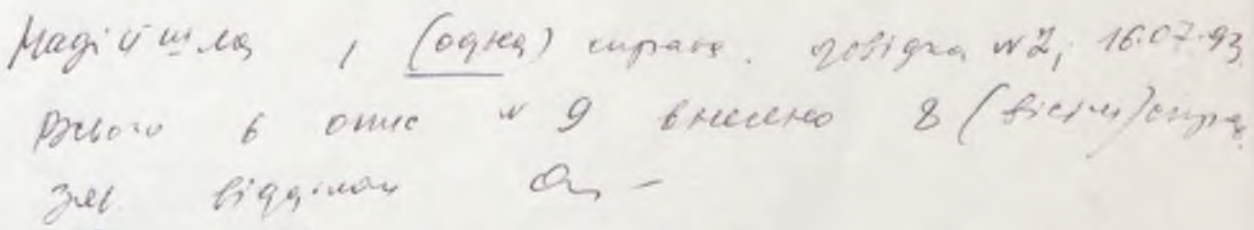 Надійшла 1 (одна) справа. довідка №2, 16.07.93
Всього в опис №9 внесено 8 (вісім) справ.
Зав. відділом